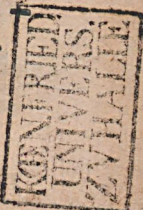 K⸱ON⸱FRIED
UNIVERS.
ZVHALLE